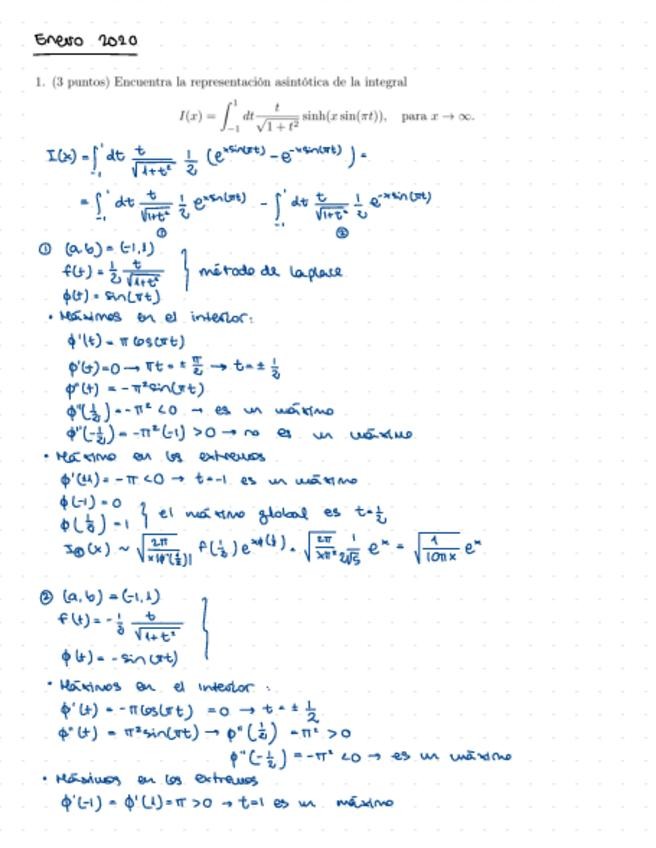 Enero 2020
1. (3 puntos) Encuentra la representación asintótica de la integral
I(x) = ∫_{-1}^{1} dt t/√(1+t²) sinh(x sin(πt)), para x → ∞.
I(x) = ∫_{-1}^{1} dt t/√(1+t²) 1/2 (e^{x sin(πt)} - e^{-x sin(πt)}) =
= ∫_{-1}^{1} dt t/√(1+t²) 1/2 e^{x sin(πt)} - ∫_{-1}^{1} dt t/√(1+t²) 1/2 e^{-x sin(πt)}
① ②
① (a,b) = (-1,1)
f(t) = 1/2 t/√(1+t²) } método de Laplace
ϕ(t) = sin(πt)
• Máximos en el interior:
ϕ'(t) = π cos(πt)
ϕ'(t) = 0 → πt = ± π/2 → t = ± 1/2
ϕ''(t) = -π² sin(πt)
ϕ''(1/2) = -π² < 0 → es un máximo
ϕ''(-1/2) = -π²(-1) > 0 → no es un máximo
• Máximo en los extremos
ϕ'(±1) = -π < 0 → t = -1 es un máximo
ϕ(-1) = 0
ϕ(1/2) = 1 } el máximo global es t = 1/2
I①(x) ~ √(2π/x|ϕ''(1/2)|) f(1/2) e^{xϕ(1/2)} = √(2π/xπ²) 1/2√5 e^x = √(1/10πx) e^x
② (a,b) = (-1,1)
f(t) = -1/2 t/√(1+t²) }
ϕ(t) = - sin(πt)
• Máximos en el interior:
ϕ'(t) = -π cos(πt) = 0 → t = ± 1/2
ϕ''(t) = π² sin(πt) → ϕ''(1/2) = π² > 0
ϕ''(-1/2) = -π² < 0 → es un máximo
• Máximos en los extremos
ϕ'(-1) = ϕ'(1) = π > 0 → t=1 es un máximo